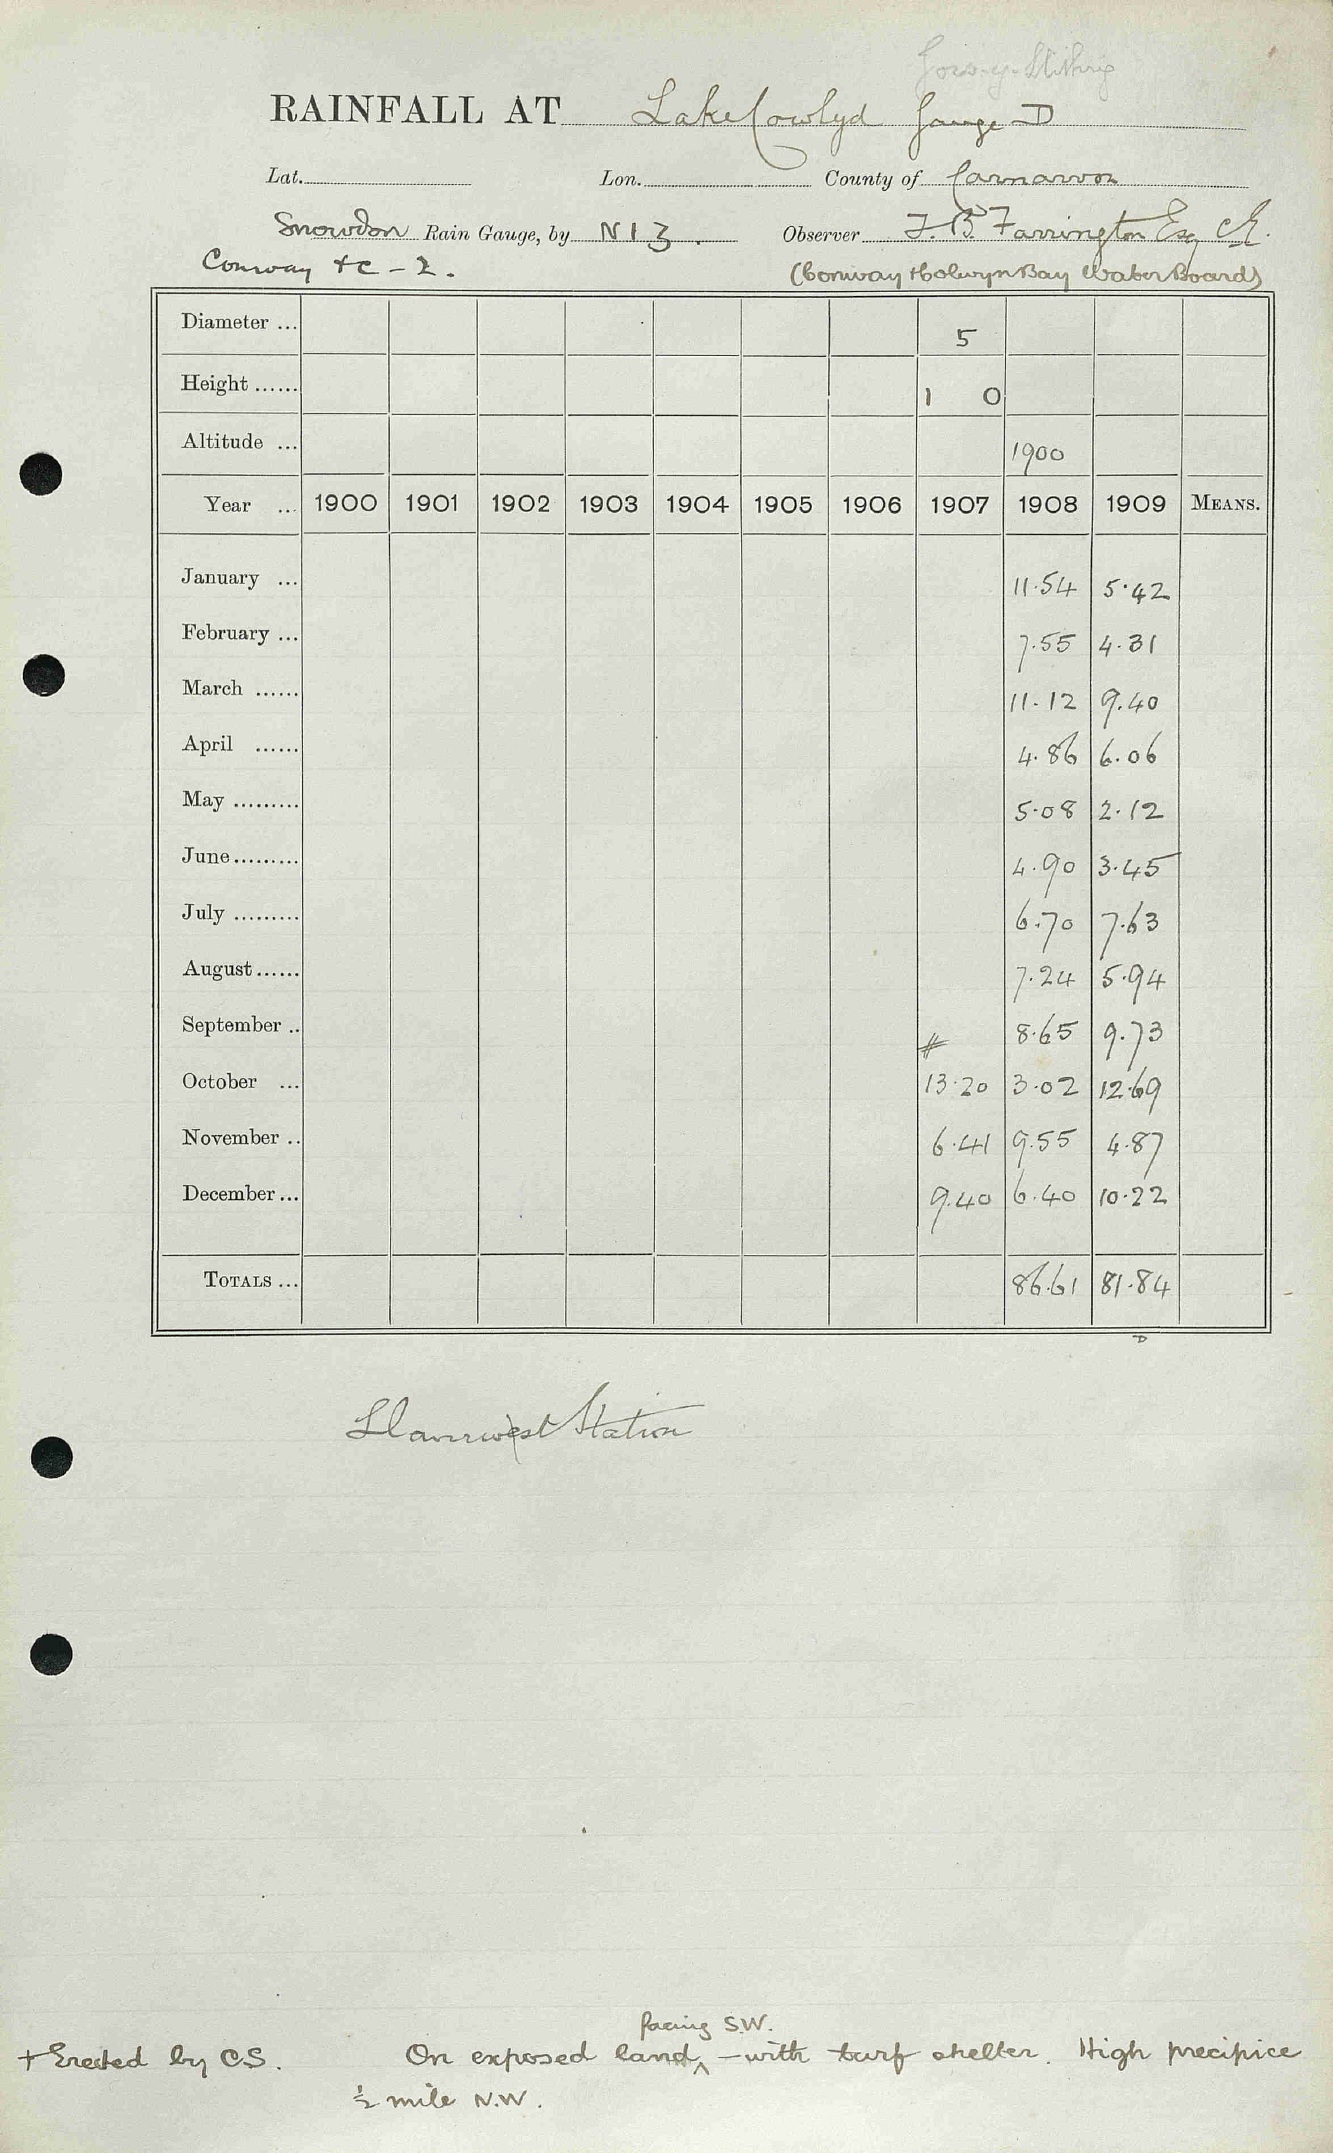 RAINFALL AT Lake Cowlyd Gauge D
Lat. Lon. County of Carnarvon
Snowdon Rain Gauge, by N13. Observer F. B. Farrington Esq CE.
Conway &c - 2. (Conway & Colwyn Bay Water Board)
Diameter ... 5
Height ...... 1 0
Altitude ... 1900
Year ... 1900 1901 1902 1903 1904 1905 1906 1907 1908 1909 MEANS.
January ... 11.54 5.42
February ... 7.55 4.31
March ...... 11.12 9.40
April ...... 4.86 6.06
May ......... 5.08 2.12
June ......... 4.90 3.45
July ......... 6.70 7.63
August ...... 7.24 5.94
September .. # 8.65 9.73
October ... 13.20 3.02 12.69
November .. 6.41 9.55 4.87
December ... 9.40 6.40 10.22
TOTALS ... 86.61 81.84
D
Llanrwst Station
facing S.W.
+ Erected by CS. On exposed land ^ - with turf shelter. High precipice
½ mile N.W.